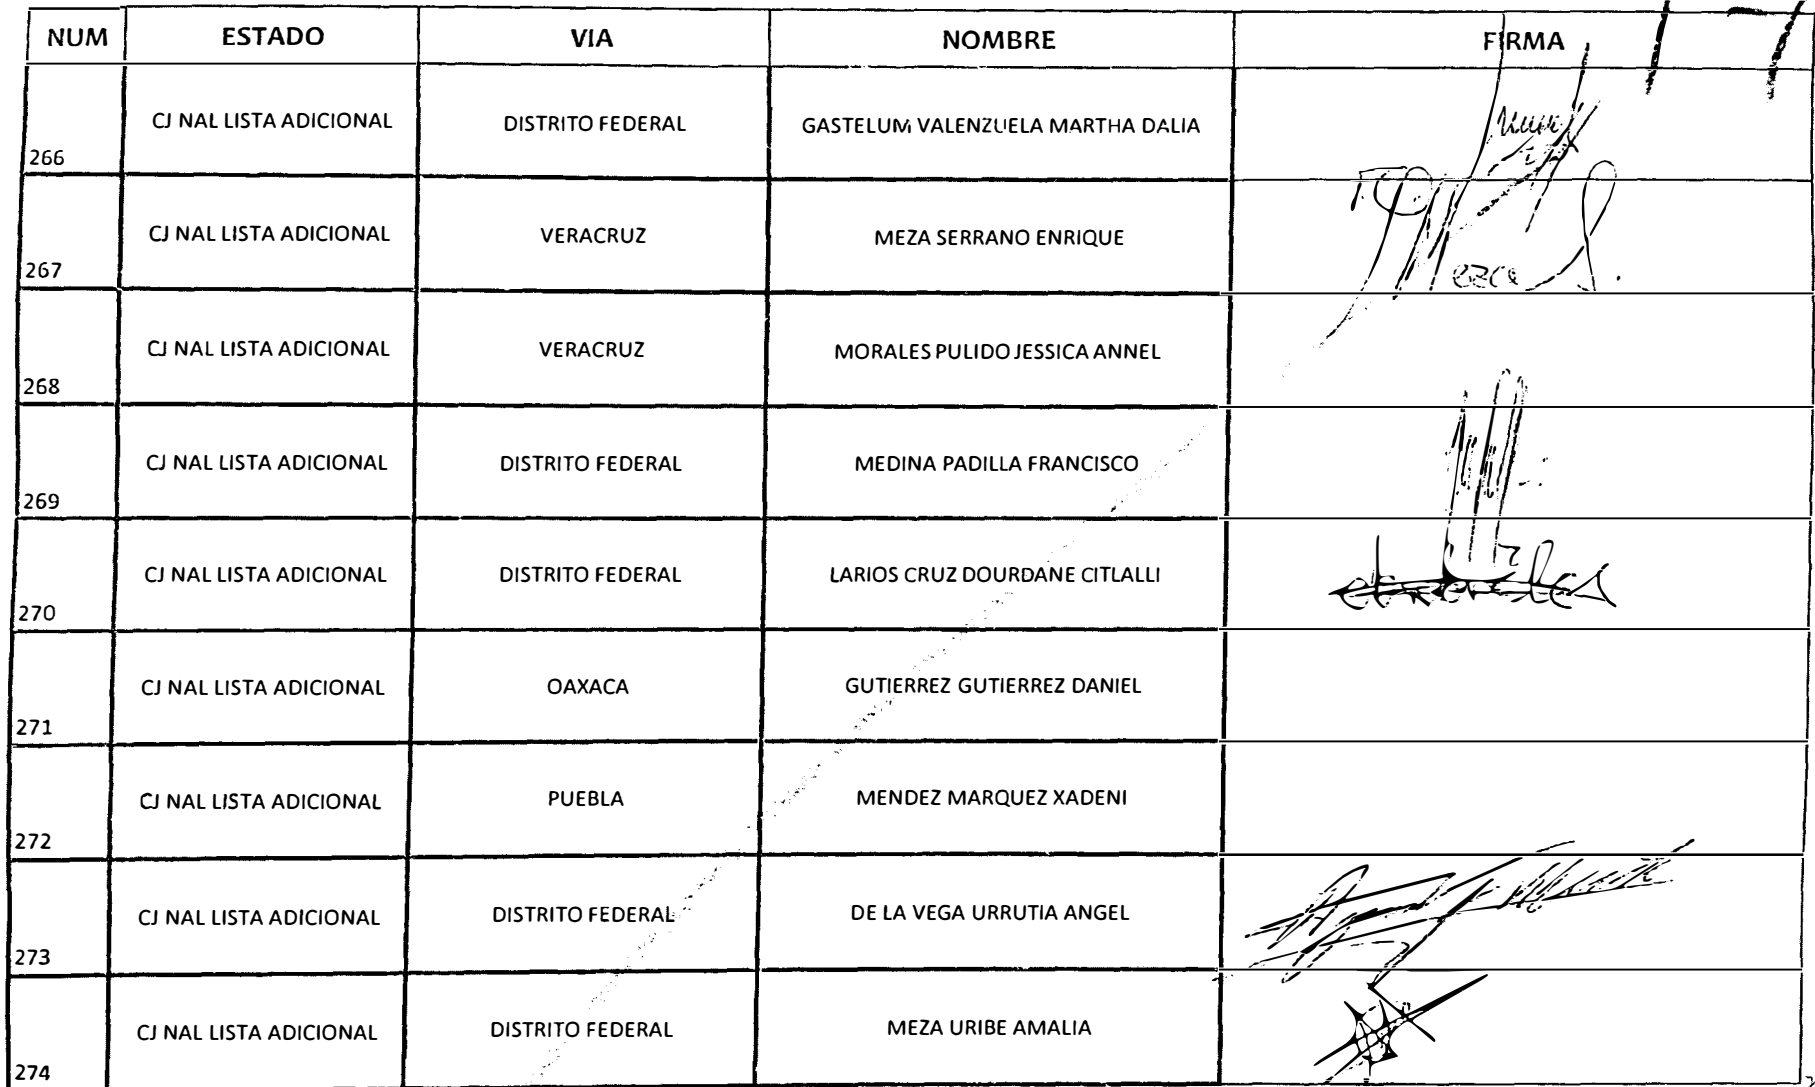 NUM ESTADO VIA NOMBRE FIRMA
266 CJ NAL LISTA ADICIONAL DISTRITO FEDERAL GASTELUM VALENZUELA MARTHA DALIA
267 CJ NAL LISTA ADICIONAL VERACRUZ MEZA SERRANO ENRIQUE
268 CJ NAL LISTA ADICIONAL VERACRUZ MORALES PULIDO JESSICA ANNEL
269 CJ NAL LISTA ADICIONAL DISTRITO FEDERAL MEDINA PADILLA FRANCISCO
270 CJ NAL LISTA ADICIONAL DISTRITO FEDERAL LARIOS CRUZ DOURDANE CITLALLI
271 CJ NAL LISTA ADICIONAL OAXACA GUTIERREZ GUTIERREZ DANIEL
272 CJ NAL LISTA ADICIONAL PUEBLA MENDEZ MARQUEZ XADENI
273 CJ NAL LISTA ADICIONAL DISTRITO FEDERAL DE LA VEGA URRUTIA ANGEL
274 CJ NAL LISTA ADICIONAL DISTRITO FEDERAL MEZA URIBE AMALIA